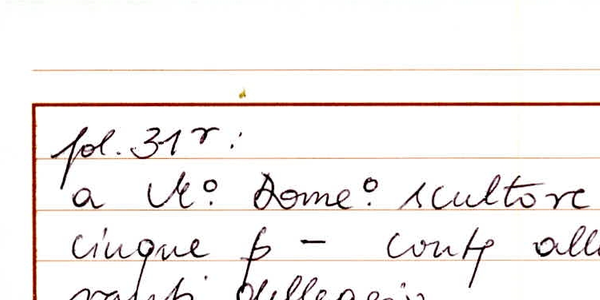 fol. 31r:
a Mº. Domeº. scultore
cinque β – contj all